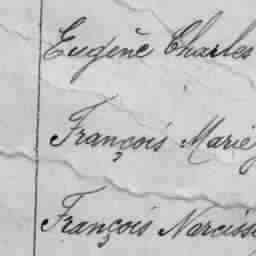 Eugène Charles
François Marie
François Narcisse